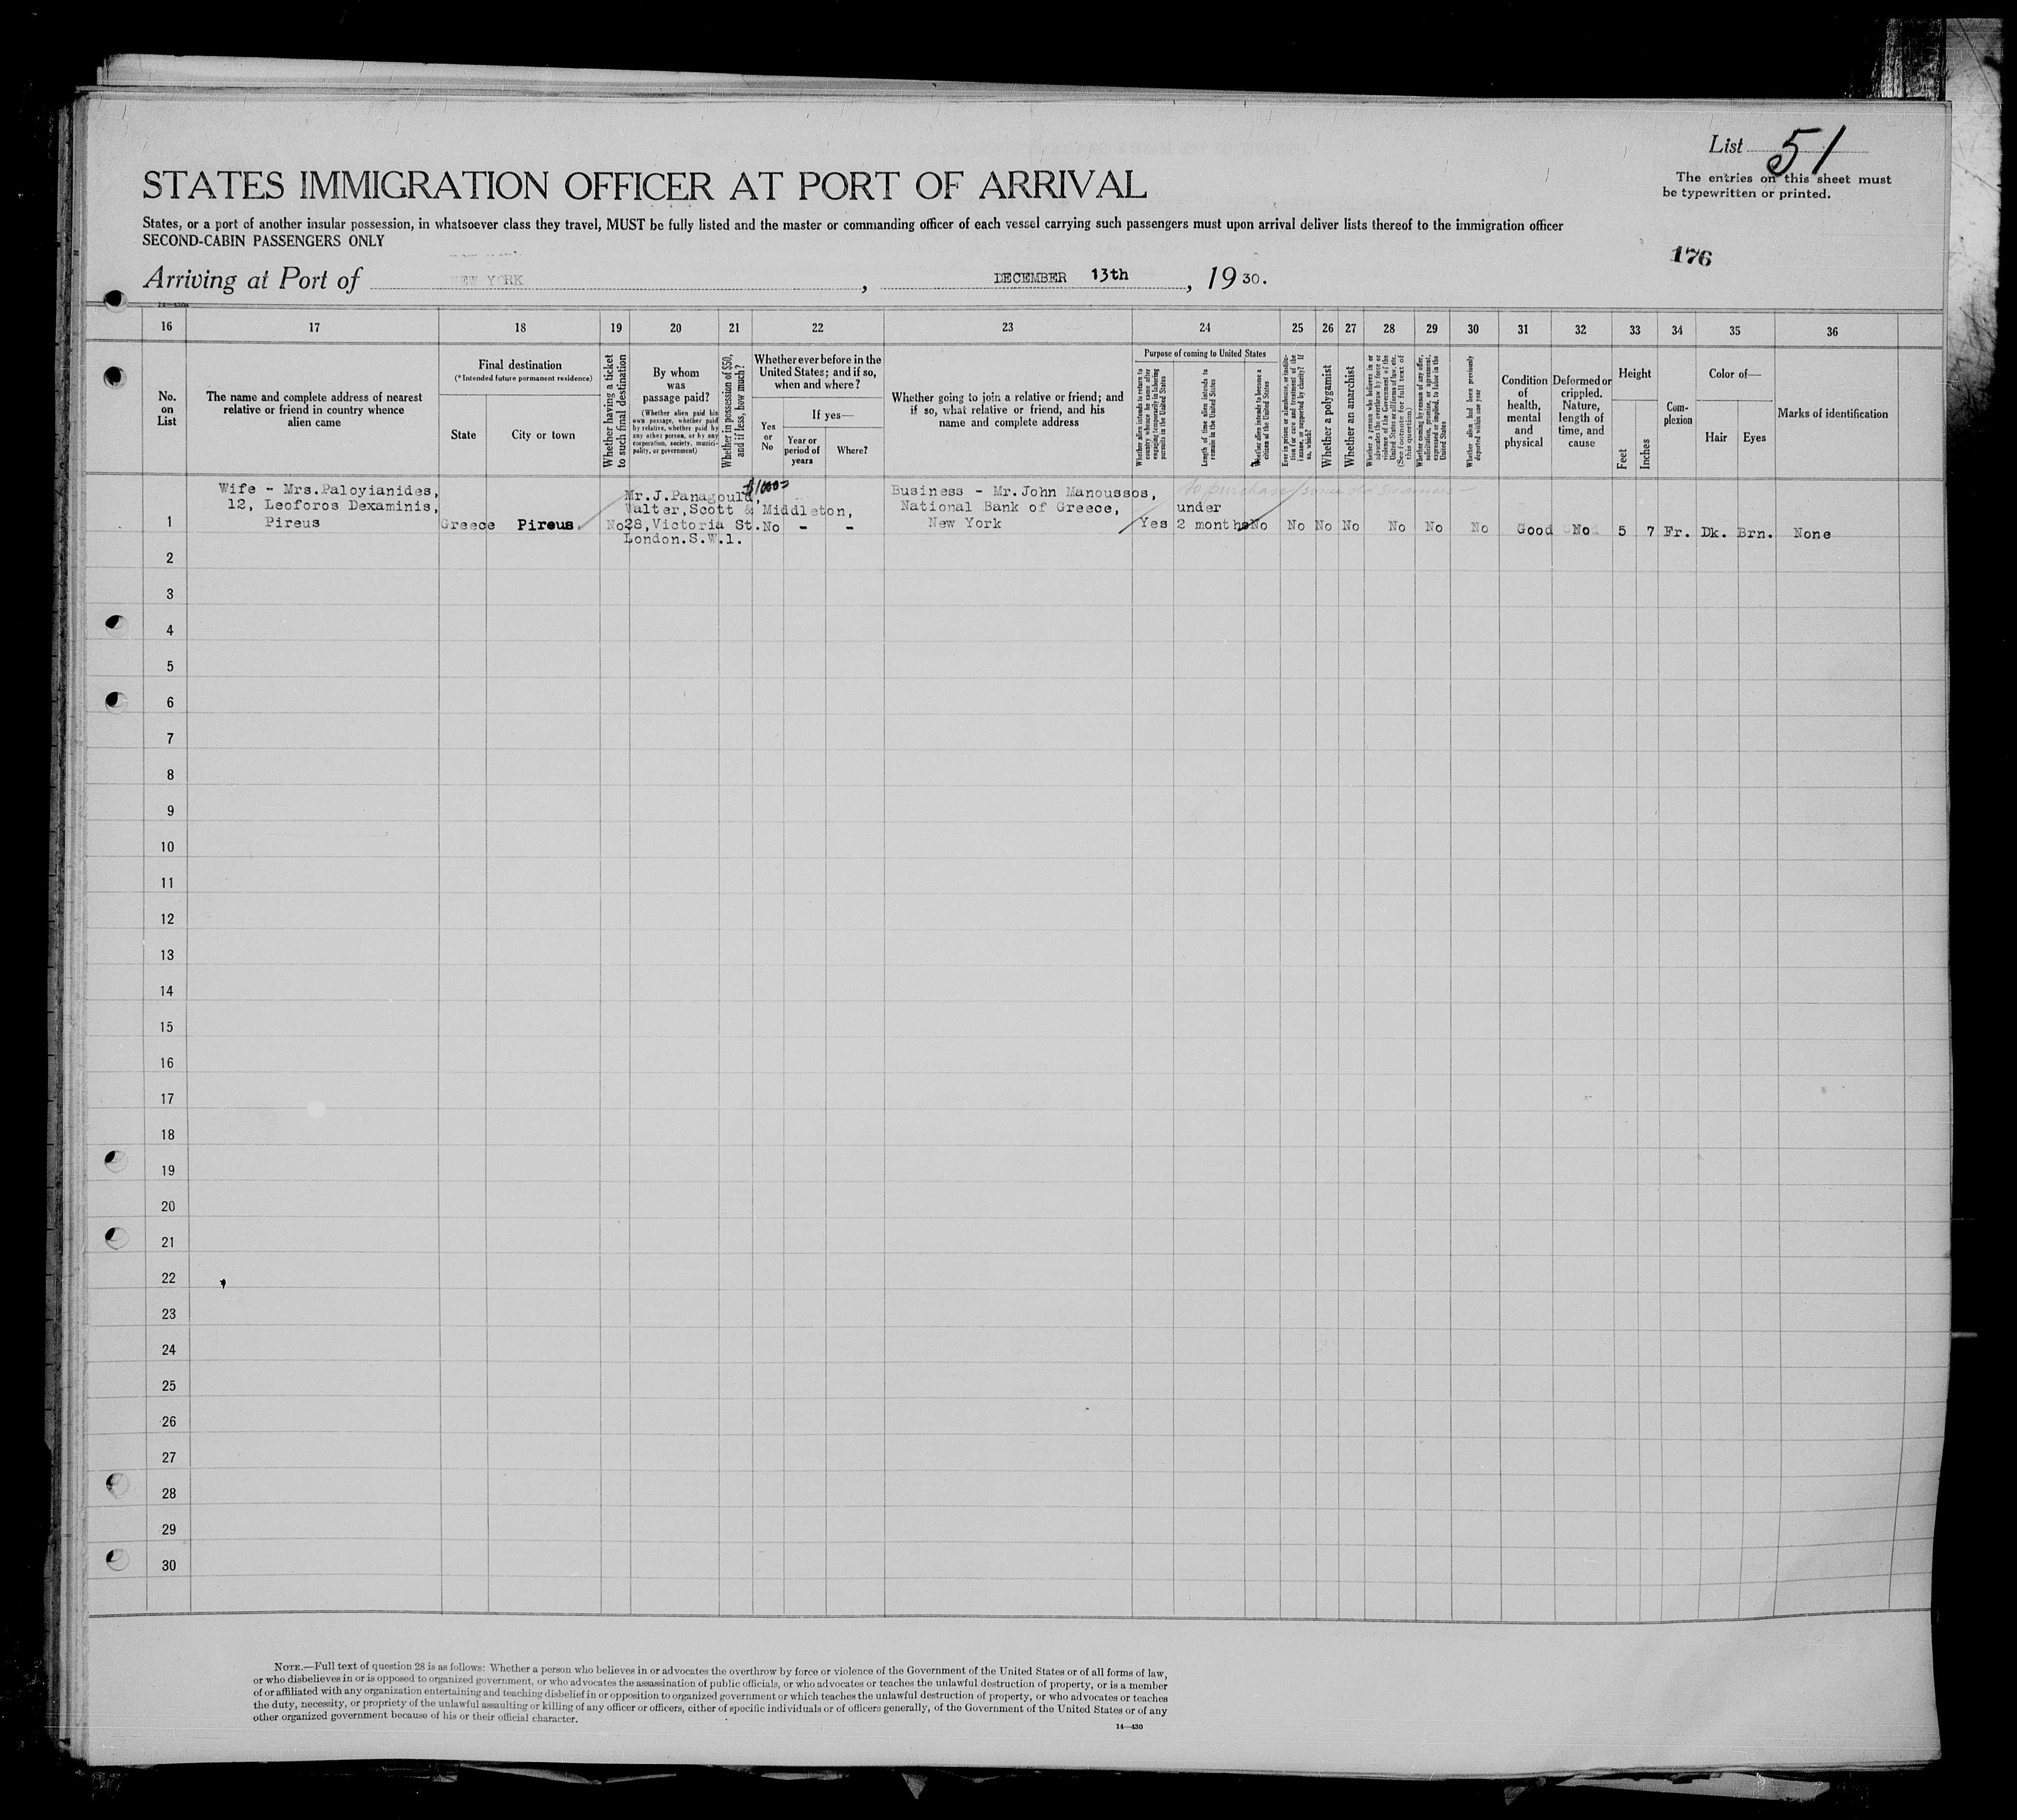 List 51
The entries on this sheet must
be typewritten or printed.
STATES IMMIGRATION OFFICER AT PORT OF ARRIVAL
States, or a port of another insular possession, in whatsoever class they travel, MUST be fully listed and the master or commanding officer of each vessel carrying such passengers must upon arrival deliver lists thereof to the immigration officer
SECOND-CABIN PASSENGERS ONLY
176
Arriving at Port of NEW YORK, DECEMBER 13th, 19 30.
16 17 18 19 20 21 22 23 24 25 26 27 28 29 30 31 32 33 34 35 36
No.
on
List
The name and complete address of nearest
relative or friend in country whence
alien came
Final destination
(*Intended future permanent residence)
State
City or town
Whether having a ticket
to such final destination
By whom
was
passage paid?
(Whether alien paid his
own passage, whether paid
by relative, whether paid by
any other person, or by any
corporation, society, munici-
pality, or government)
Whether in possession of $50,
and if less, how much?
Whether ever before in the
United States; and if so,
when and where?
If yes—
Yes
or
No
Year or
period of
years
Where?
Whether going to join a relative or friend; and
if so, what relative or friend, and his
name and complete address
Purpose of coming to United States
Whether alien intends to return to
country whence he came after
engaging temporarily in laboring
pursuits in the United States
Length of time alien intends to
remain in the United States
Whether alien intends to become a
citizen of the United States
Ever in prison or almshouse, or institu-
tion for care and treatment of the
insane, or supported by charity? If
so, which?
Whether a polygamist
Whether an anarchist
Whether a person who believes in or
advocates the overthrow by force or
violence of the Government of the
United States or all forms of law, etc.
(See footnote for full text of
this question)
Whether coming by reason of any offer,
solicitation, promise, or agreement,
expressed or implied, to labor in the
United States
Whether alien had been previously
deported within one year
Condition
of
health,
mental
and
physical
Deformed or
crippled.
Nature,
length of
time, and
cause
Height
Feet
Inches
Com-
plexion
Color of—
Hair
Eyes
Marks of identification
Wife - Mrs.Paloyianides,
12, Leoforos Dexaminis,
Pireus
1
Greece
Pireus
No
Mr.J.Panagould,
Walter,Scott & Middleton,
28,Victoria St.
London.S.W.1.
$1000
No - -
Business - Mr.John Manoussos,
National Bank of Greece,
New York
to purchase some old steamers
Yes
under
2 months
No No No No No No No Good No 5 7 Fr. Dk. Brn. None
2
3
4
5
6
7
8
9
10
11
12
13
14
15
16
17
18
19
20
21
22
23
24
25
26
27
28
29
30
NOTE.—Full text of question 28 is as follows: Whether a person who believes in or advocates the overthrow by force or violence of the Government of the United States or of all forms of law,
or who disbelieves in or is opposed to organized government, or who advocates the assassination of public officials, or who advocates or teaches the unlawful destruction of property, or is a member
of or affiliated with any organization entertaining and teaching disbelief in or opposition to organized government or which teaches the unlawful destruction of property, or who advocates or teaches
the duty, necessity, or propriety of the unlawful assaulting or killing of any officer or officers, either of specific individuals or of officers generally, of the Government of the United States or of any
other organized government because of his or their official character.
14—430